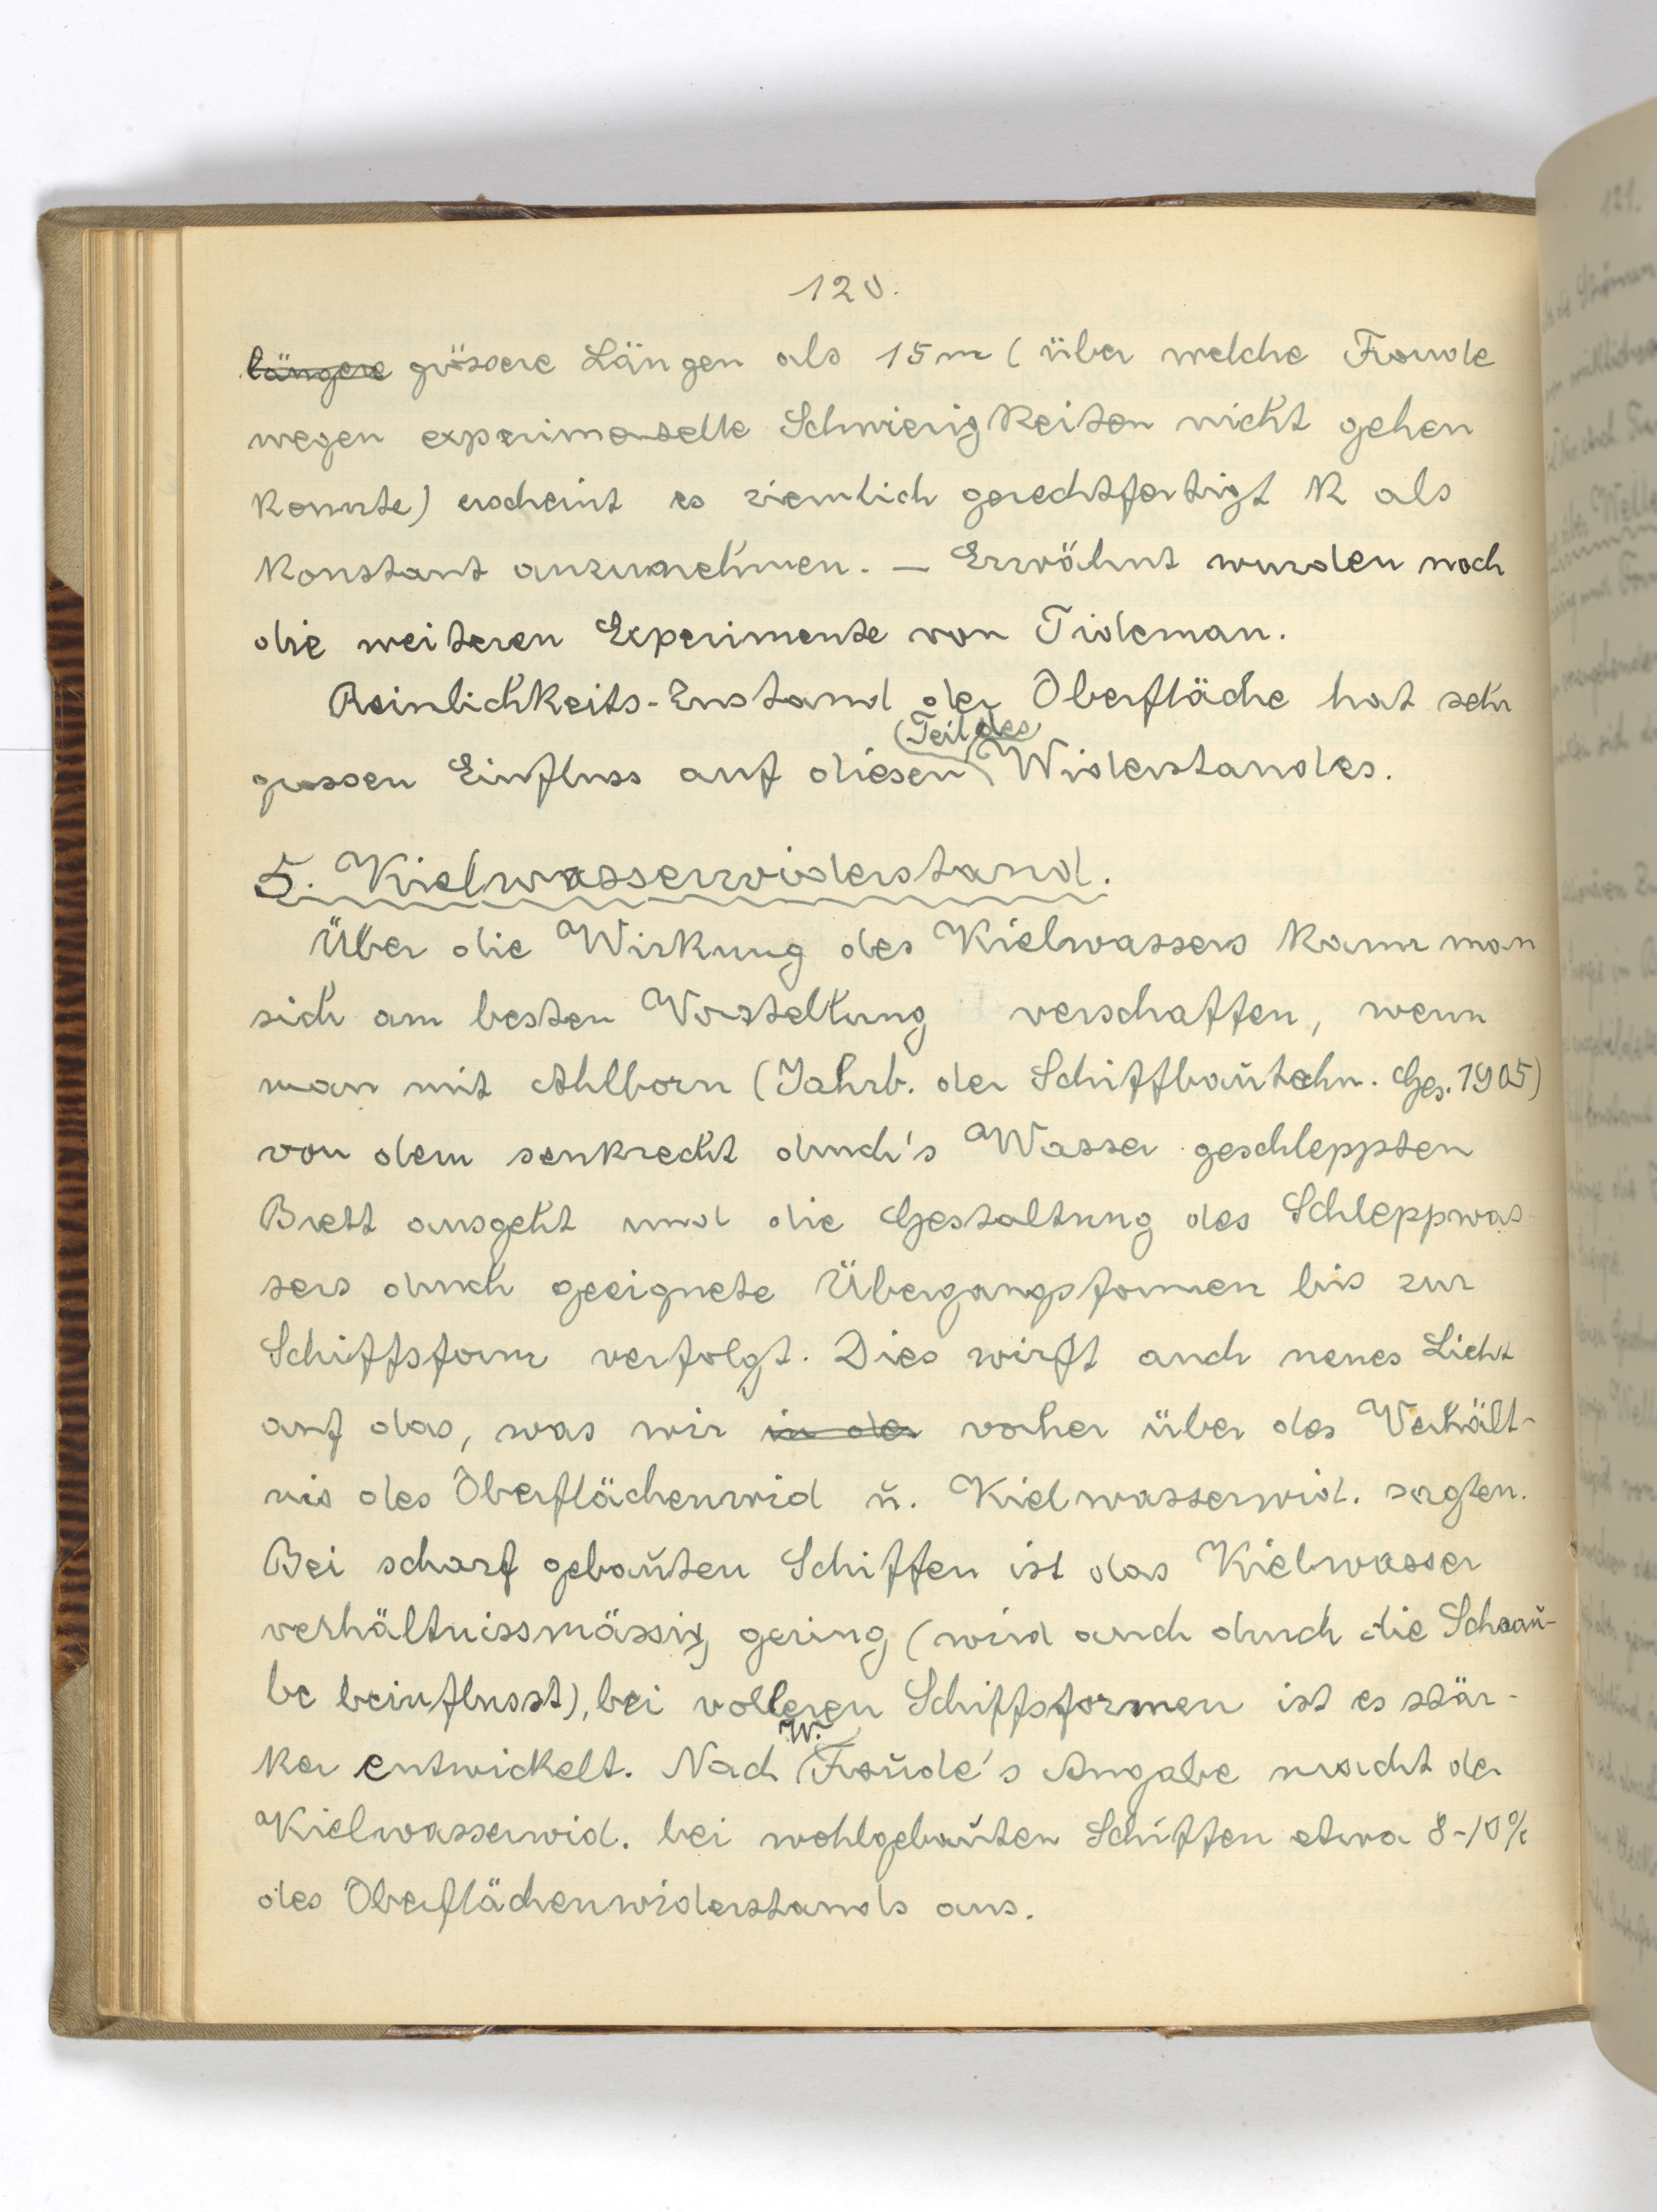 120.
längere grössere Längen als 15 m (über welche Froude
wegen experimentelle Schwierigkeiten nicht gehen
konnte) erscheint es ziemlich gerechtfertigt k als
konstant anzunehmen. — Erwähnt wurden noch
die weiteren Experimente von Tideman.
Reinlichkeits-Zustand der Oberfläche hat sehr
Teil des
grossen Einfluss auf diesen Widerstandes.
5. Kielwasserwiderstand.
Über die Wirkung des Kielwassers kann man
sich am besten Vorstellung verschaffen, wenn
man mit Ahlborn (Jahrb. der Schiffbautechn. Ges. 1905)
von dem senkrecht durch's Wasser geschleppten
Brett ausgeht und die Gestaltung des Schleppwas-
sers durch geeignete Übergangsformen bis zur
Schiffsform verfolgt. Dies wirft auch neues Licht
auf das, was wir in der vorher über das Verhält-
nis des Oberflächenwid u. Kielwasserwid. sagten.
Bei scharf gebauten Schiffen ist das Kielwasser
verhältnissmässig gering (wird auch durch die Schrau-
be beinflusst), bei volleren Schiffsformen ist es stär-
W.
ker entwickelt. Nach Froude's Angabe macht der
Kielwasserwid. bei wohlgebauten Schiffen etwa 8-10%
des Oberflächenwiderstands aus.